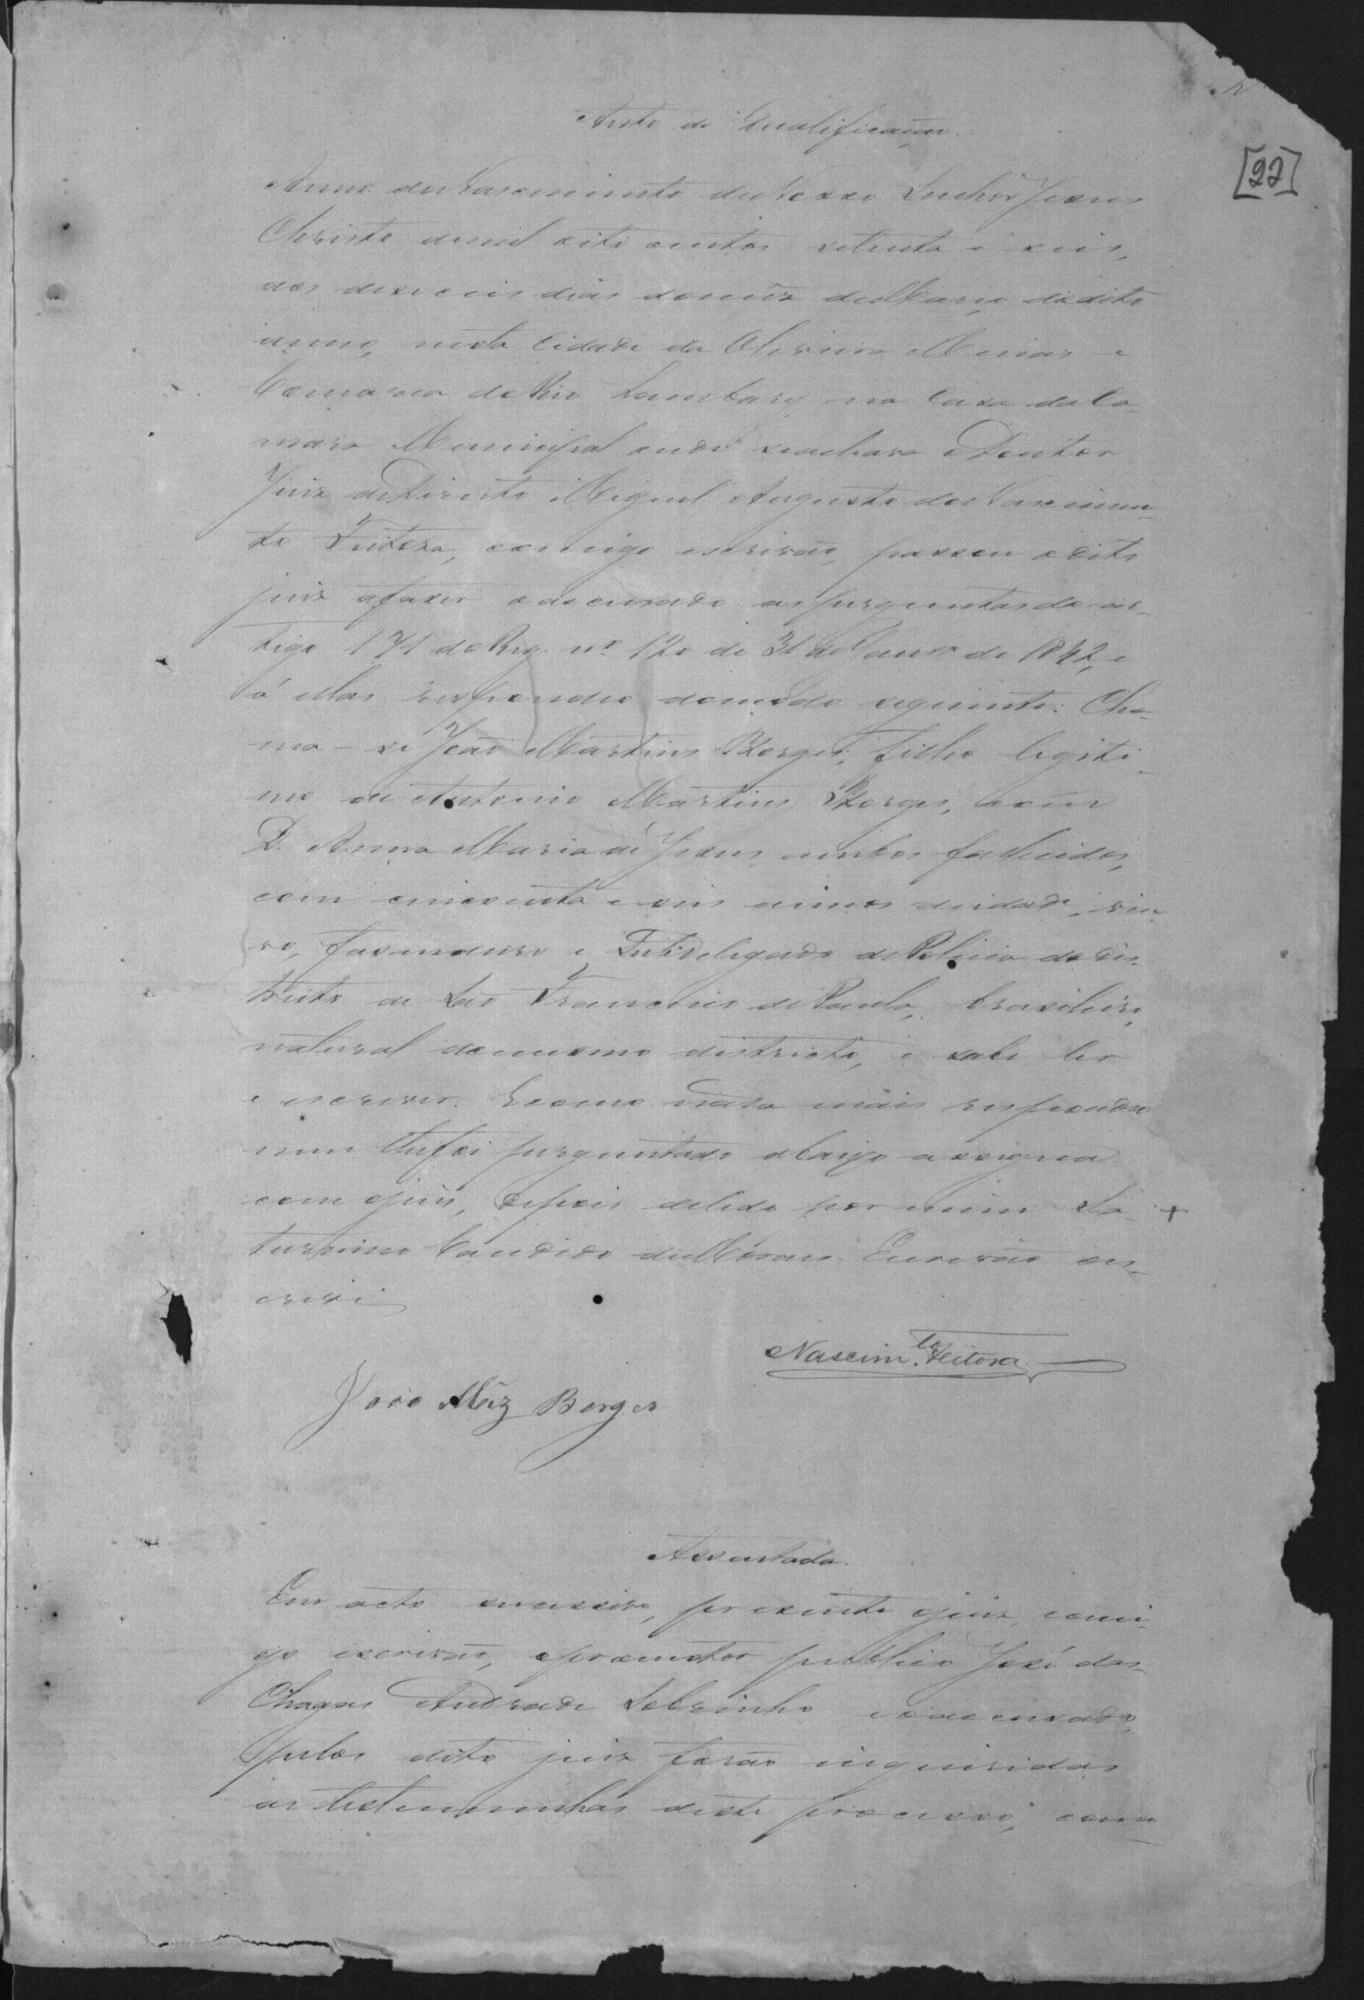 [22]
Auto de Qualificação.
Anno do Nascimento de Nosso Senhor Jesus
Christo de mil oito centos setenta e seis,
aos deseseis dias do mês de Março do dito
anno, nesta Cidade da Oliveira Minas e
Comarca do Rio Lambary na Casa da Ca-
mara Municipal onde se achava o Doutor
Juiz de Direito Miguel Augusto do Nascimen-
to Feitosa, comigo escrivão, passou o dito
juiz a faser o accusado as perguntas do ar-
tigo 171 do Reg. nº 120 de 31 de Janrº de 1842, e
á ellas respondeo do modo seguinte: Cha-
ma-se João Martins Borges, filho legiti-
mo de Antonio Martins Borges, e de
D. Anna Maria de Jesus, ambos fallecidos,
com cincoenta e seis annos de idade, viu-
vo, fasendeiro e Subdelegado de Policia do dis-
tricto de São Francisco de Paula, brasileiro,
natural do mesmo districto, e sabe ler
e escrever. E como nada mais respondeo
nem lhe foi perguntado abaixo assigna
com o juis, depois de lido por mim Sa-
turnino Candido de Moraes Escrivão es-
crevi
Nascim.to Feitosa
João Miz Borges
Assentada.
Em acto successivo, presente o juiz, comi-
go escrivão, o promotor publico José das
Chagas Andrade Sobrinho e o accusado,
pelos dito juiz forão inqueridas
as testemunhas deste processo, como